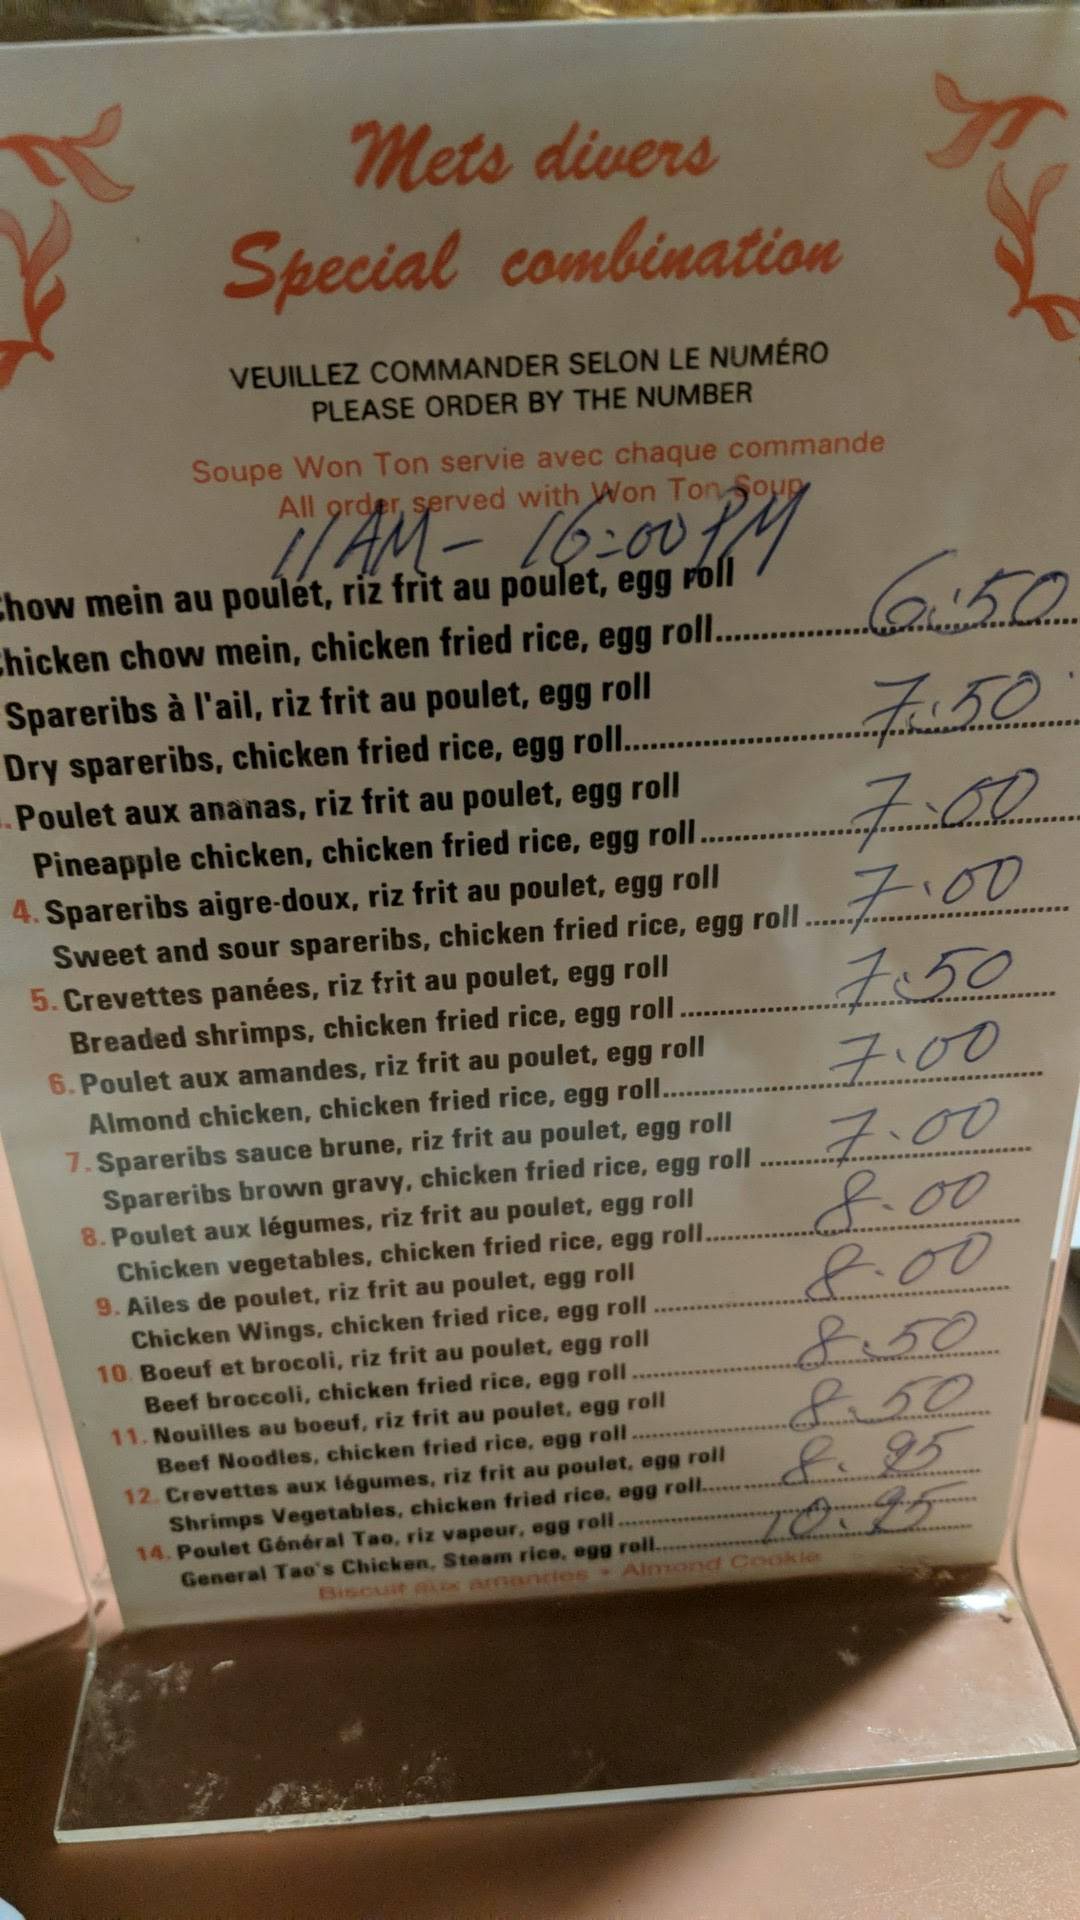 Mets divers
Special combination
VEUILLEZ COMMANDER SELON LE NUMÉRO
PLEASE ORDER BY THE NUMBER
Soupe Won Ton servie avec chaque commande
All order served with Won Ton Soup
11AM - 16:00 PM
Chow mein au poulet, riz frit au poulet, egg roll
Chicken chow mein, chicken fried rice, egg roll 6.50
Spareribs à l'ail, riz frit au poulet, egg roll
Dry spareribs, chicken fried rice, egg roll 7.50
. Poulet aux ananas, riz frit au poulet, egg roll
Pineapple chicken, chicken fried rice, egg roll 7.00
4. Spareribs aigre-doux, riz frit au poulet, egg roll
Sweet and sour spareribs, chicken fried rice, egg roll 7.00
5. Crevettes panées, riz frit au poulet, egg roll
Breaded shrimps, chicken fried rice, egg roll 7.50
6. Poulet aux amandes, riz frit au poulet, egg roll
Almond chicken, chicken fried rice, egg roll 7.00
7. Spareribs sauce brune, riz frit au poulet, egg roll
Spareribs brown gravy, chicken fried rice, egg roll 7.00
8. Poulet aux légumes, riz frit au poulet, egg roll
Chicken vegetables, chicken fried rice, egg roll 8.00
9. Ailes de poulet, riz frit au poulet, egg roll
Chicken Wings, chicken fried rice, egg roll 8.00
10. Boeuf et brocoli, riz frit au poulet, egg roll
Beef broccoli, chicken fried rice, egg roll 8.50
11. Nouilles au boeuf, riz frit au poulet, egg roll
Beef Noodles, chicken fried rice, egg roll 8.50
12. Crevettes aux légumes, riz frit au poulet, egg roll
Shrimps Vegetables, chicken fried rice, egg roll 8.95
14. Poulet Général Tao, riz vapeur, egg roll
General Tao's Chicken, Steam rice, egg roll 10.95
Biscuit aux amandes • Almond Cookie